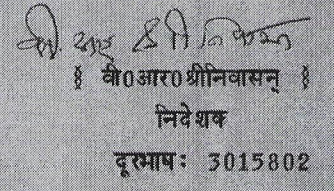 वी. आर श्रीनिवासन
§ वी0आर0श्रीनिवासन् §
निदेशक
दूरभाषः 3015802